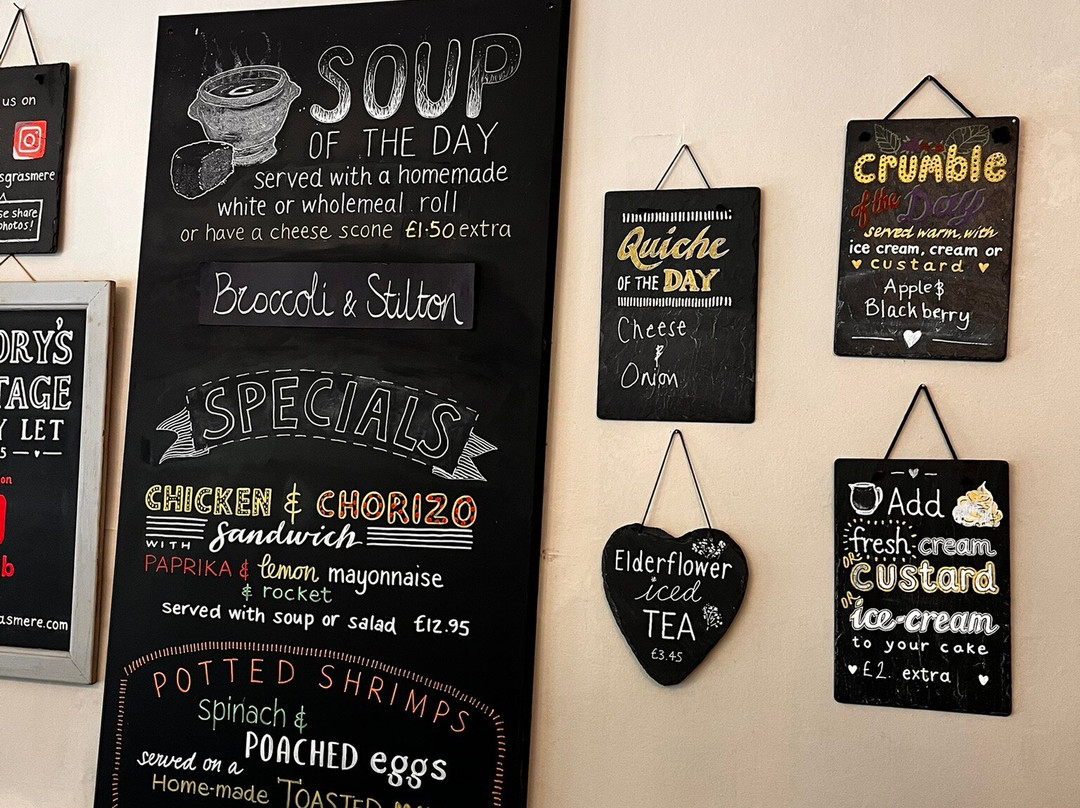 us on
sgrasmere
se share
photos!
ORY'S
TAGE
Y LET
on
b
asmere.com
SOUP
OF THE DAY
served with a homemade
white or wholemeal roll
or have a cheese scone £1.50 extra
Broccoli & Stilton
SPECIALS
CHICKEN & CHORIZO
WITH Sandwich
PAPRIKA & lemon mayonnaise
& rocket
served with soup or salad £12.95
POTTED SHRIMPS
spinach &
POACHED eggs
served on a
Home-made TOASTED
Quiche
OF THE DAY
Cheese
&
Onion
Elderflower
iced
TEA
£3.45
crumble
of the Day
served warm, with
ice cream, cream or
custard
Apple &
Blackberry
Add
fresh cream
OR custard
OR ice-cream
to your cake
£2 extra